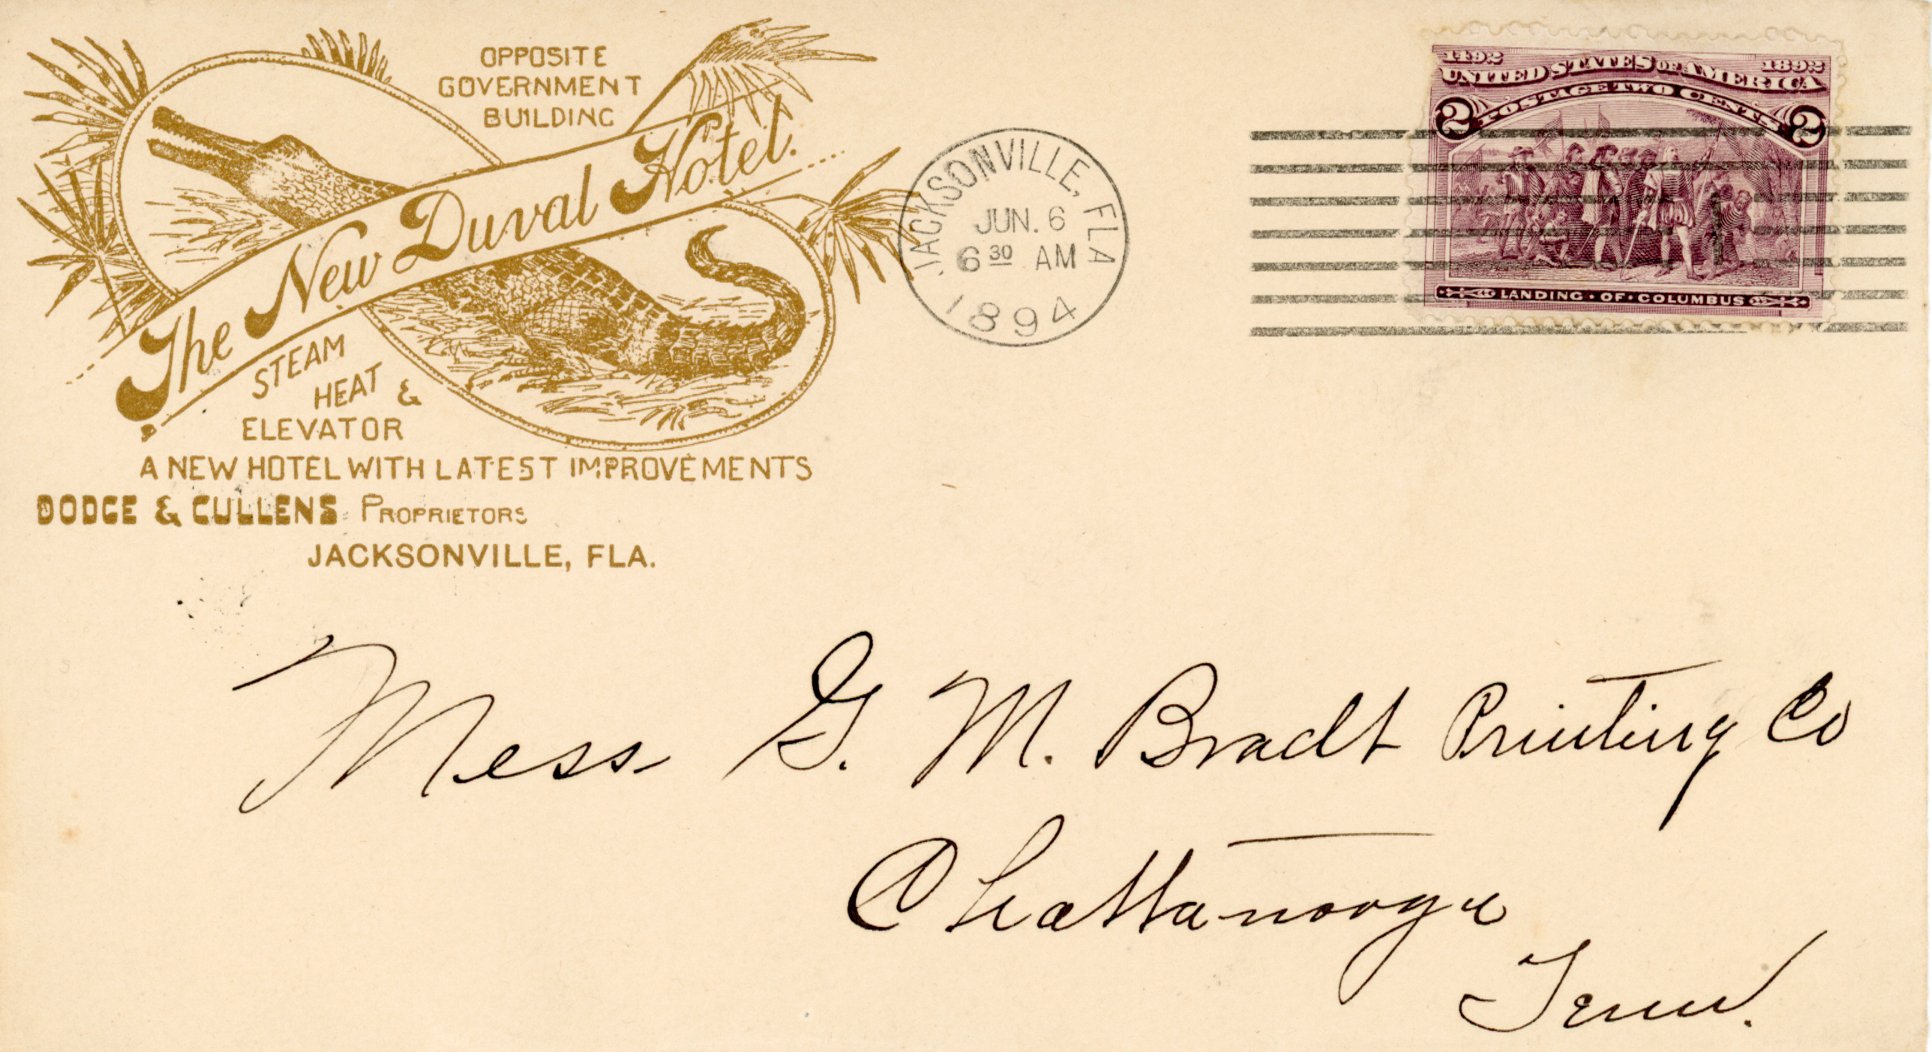 OPPOSITE
GOVERNMENT
BUILDING
The New Duval Hotel.
STEAM
HEAT &
ELEVATOR
A NEW HOTEL WITH LATEST IMPROVEMENTS
DODGE & CULLENS PROPRIETORS
JACKSONVILLE, FLA.
JACKSONVILLE, FLA
JUN. 6
6 30 AM
1894
1492 1892
UNITED STATES OF AMERICA
POSTAGE TWO CENTS
2 2
LANDING · OF · COLUMBUS
Mess G. M. Bradt Printing Co
Chattanooga
Tenn.